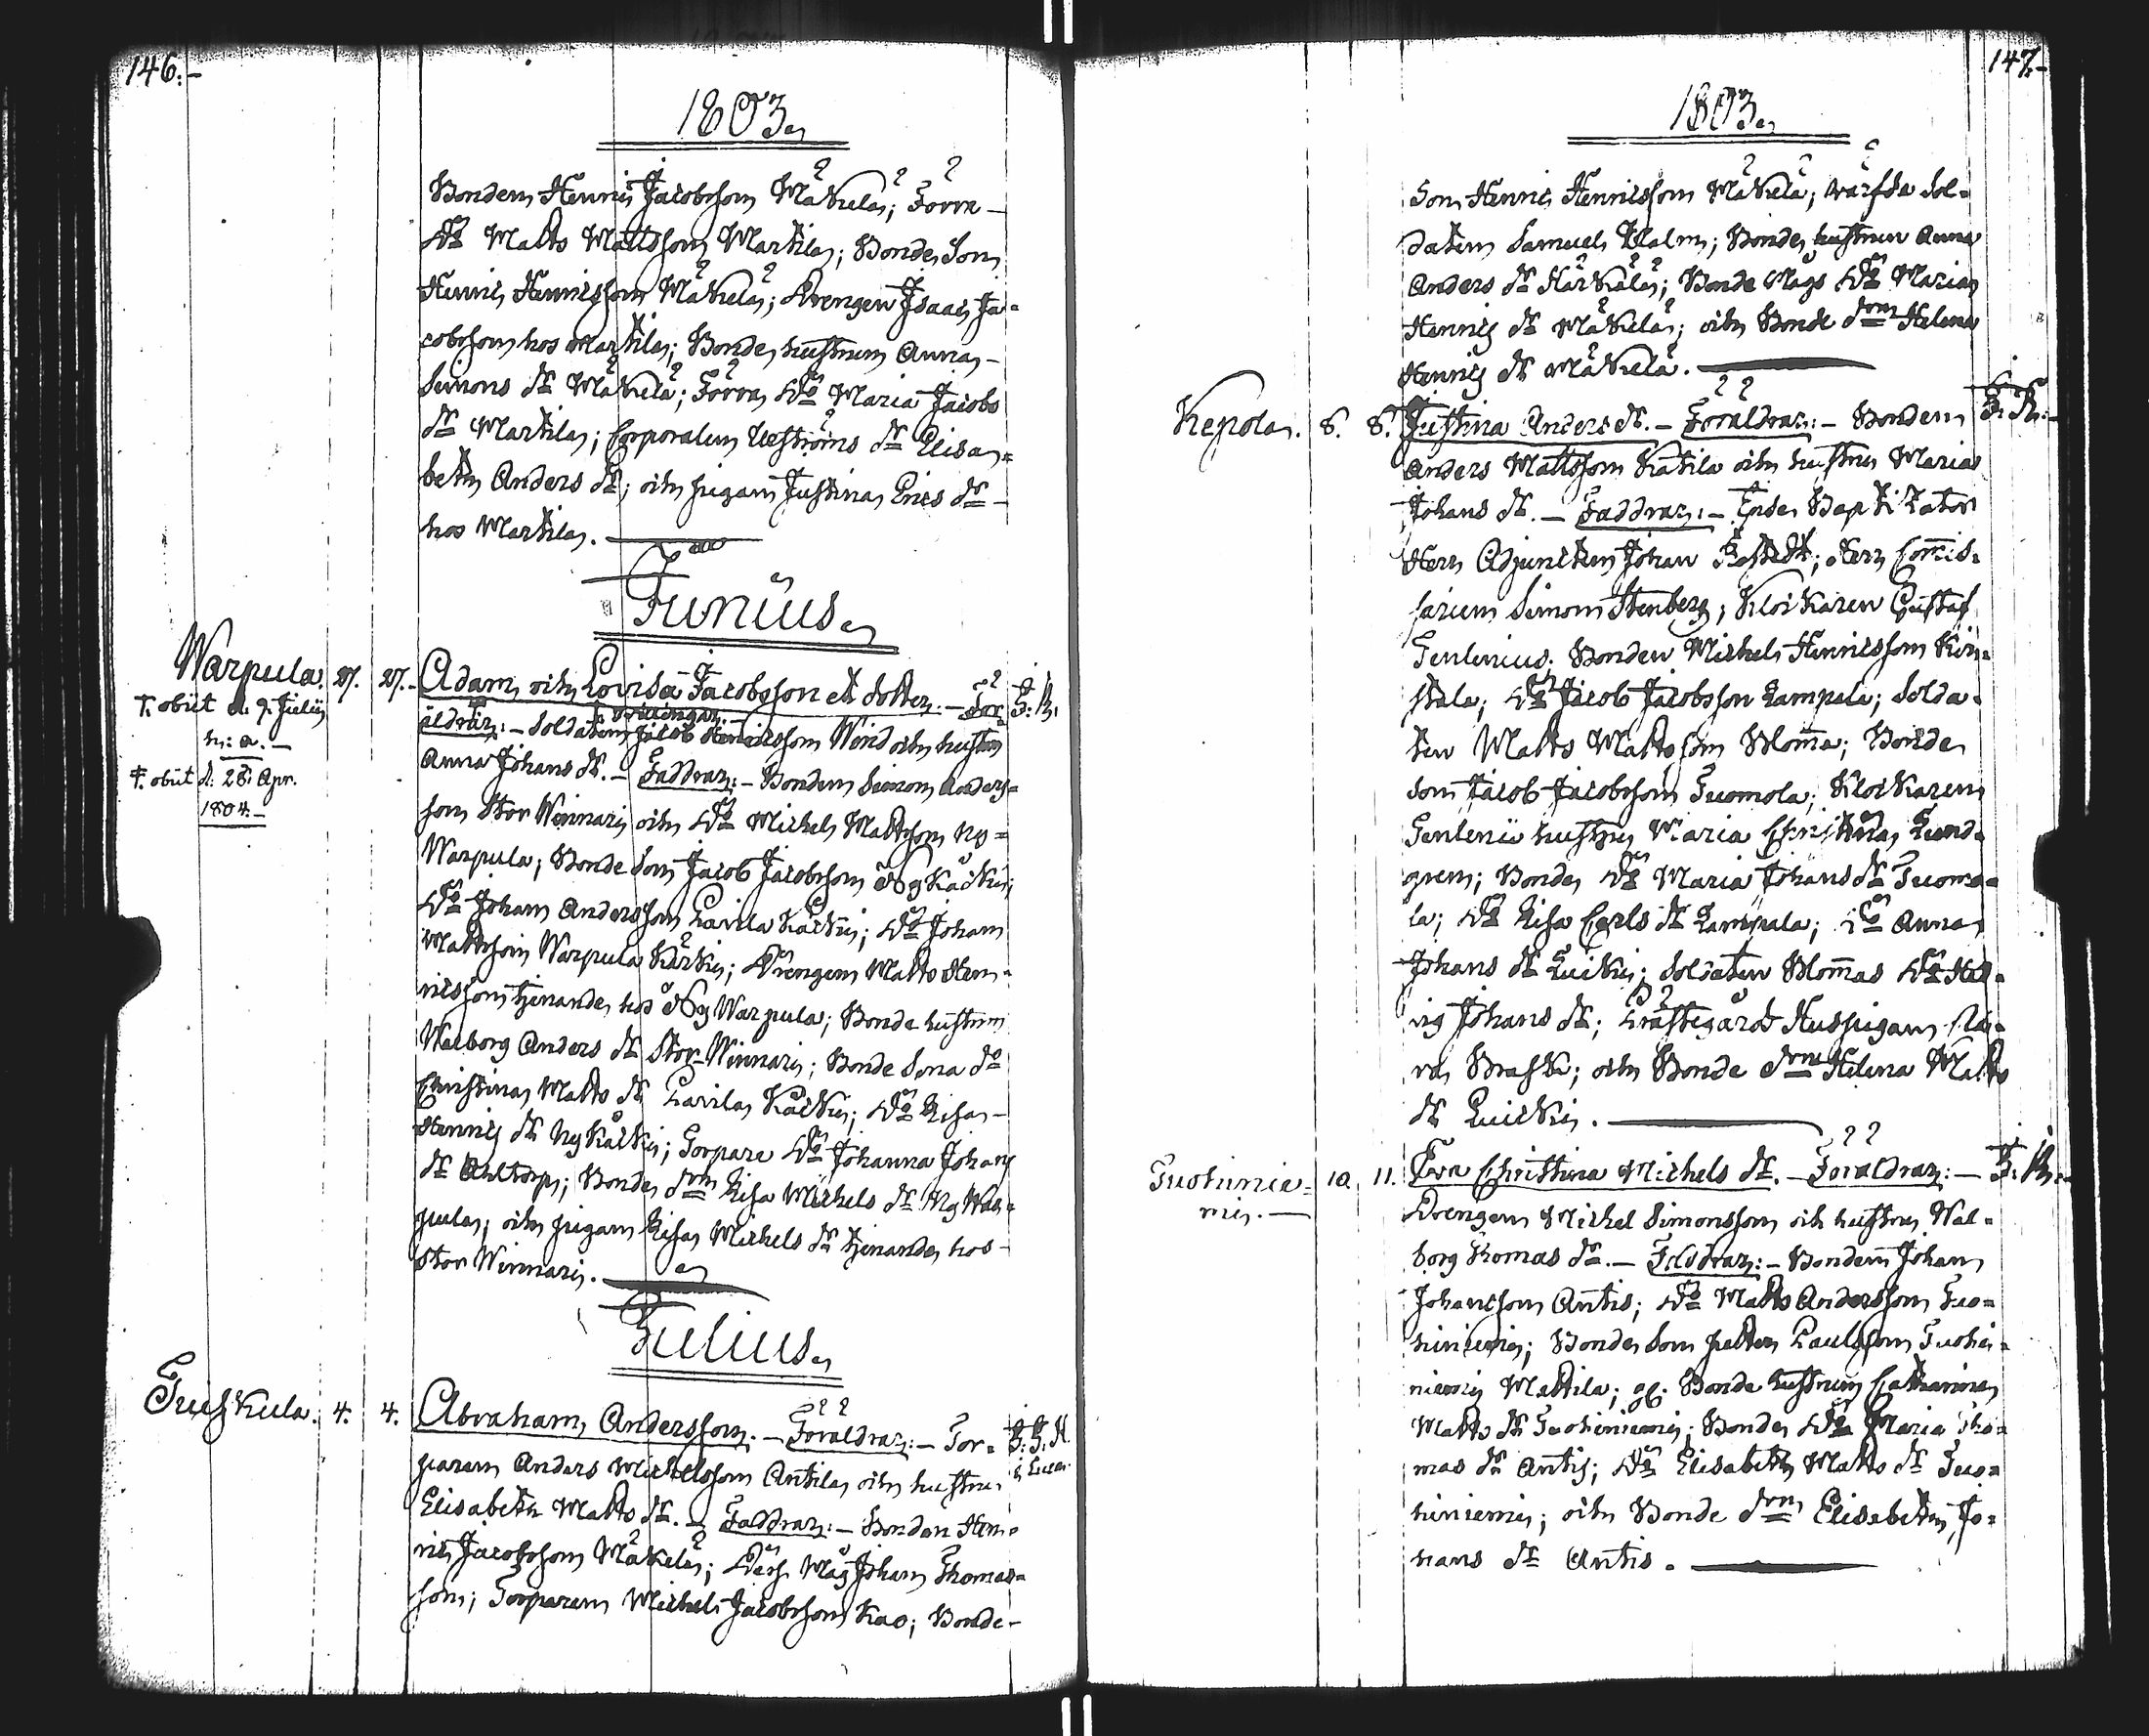 146.-
1803.
Bonden Henric Jacobsson Mäkelä; Förra
D:o Matts Mattsson Martila; Bonde Son
Henric Henricsson Mäkelä; Drengen Isaac Ja=
cobsson hos Martila; Bonde hustrun Anna
Simons dr Mäkelä; Förra D:o Maria Jacobs
dr Martila; Corporalen Uhströms dr Elisa=
beth Anders dr; och pigan Justina Erics dr
hos Martila.
Junius
Warpula. 27. 27. Adam och Lovisa Jacobsson et dotter. - För= J: R.
tvillingar.
äldrar: - Soldaten Jacob Henricsson Wind och hustru
Anna Johans dr. - Faddrar: - Bonden Simon Anders=
son Stor Winnari och D:o Michel Mattsson Ny=
Warpula; Bonde Son Jacob Jacobsson Nykäckij;
D:o Johan Andersson Lavila Käckij; D:o Johan
Mattsson Warpula Kärki; Drengen Matts Hen=
ricsson tjenande hos Ny Warpula; Bonde hustrun
Walborg Anders dr Stor Winnari; Bonde Sona d:o
Christina Matts dr Lavila Käckij; D:o Lisa
Henrics dr Nykäckij; Torpare D:o Johanna Johans
dr Ahltorp; Bonde drn Lisa Michels dr Ny War=
pula; och pigan Lisa Michels dr tjenande hos
Stor Winnari.
†. obiit d: 9. Julij
h: a. -
†. obiit d: 28. Apr.
1804. -
Julius
Juskula. 4. 4. Abraham Andersson. - Föräldrar: - Tor= J: J: H.
paren Anders Michelsson Antila och hustru
Elisabeth Matts dr. - Faddrar: - Bonden Hen=
ric Jacobsson Mäkelä; Dess Måg Johan Thomas=
son; Torparen Michel Jacobsson Kao; Bonde
147.-
1803.
Son Henric Henricsson Mäkelä; wärfda Sol=
daten Samuel Malm; Bonde hustrun Anna
Anders dr Härkälä; Bonde Mågs D:o Maria
Henrics dr Mäkelä; och Bonde drn Helena
Henrics dr Mäkelä.
Kepola. 8. 8. Justina Anders dr. - Föräldrar: - Bonden J: R.
Anders Mattsson Katila och hustru Maria
Johans dr. - Faddrar: - Ipse Baptizator
Herr Adjuncten Johan; Herr Com̄is=
sarien Simon Stenberg; Klockaren Gustaf
Genlenius; Bonden Michel Henricsson Kön=
tula; D:o Jacob Jacobsson Lampala; Solda=
ten Matts Mattsson Blom̄a; Bonde
Son Jacob Jacobsson Tuomola; Klockaren
Genlenii hustru Maria Christina Lund=
gren; Bonde D:o Maria Johans dr Tuomo=
la; D:o Lisa Carls dr Lampala; D:o Anna
Johans dr Luicki; Soldaten Blom̄as D:o Hed=
vig Johans dr; Prästegårds Huspigan
Brask; och Bonde drn Helena Matts
dr Luicki.
Tuohinie=
mi. 10. 11. Eva Christina Michels dr. - Föräldrar: - J: R.
Drengen Michel Simonsson och hustru Wal=
borg Thomas dr. - Faddrar: - Bonden Johan
Johansson Antis; D:o Matts Andersson Tuo=
hiniemi; Bonde Son Petter Paulsson Tuohi=
niemi Mattila; gl. Bonde hustrun Catharina
Matts dr Tuohiniemi; Bonde D:o Maria Tho=
mas dr Antis; D:o Elisabeth Matts dr Tuo=
hiniemi; och Bonde drn Elisabeth Jo=
hans dr Antis.